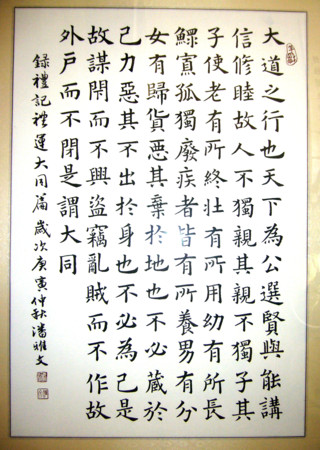 大道之行也天下為公選賢與能講
信修睦故人不獨親其親不獨子其
子使老有所終壯有所用幼有所長
鰥寡孤獨廢疾者皆有所養男有分
女有歸貨惡其棄於地也不必藏於
己力惡其不出於身也不必為己是
故謀閉而不興盜竊亂賊而不作故
外戶而不閉是謂大同
錄禮記禮運大同篇 歲次庚寅仲秋潘文